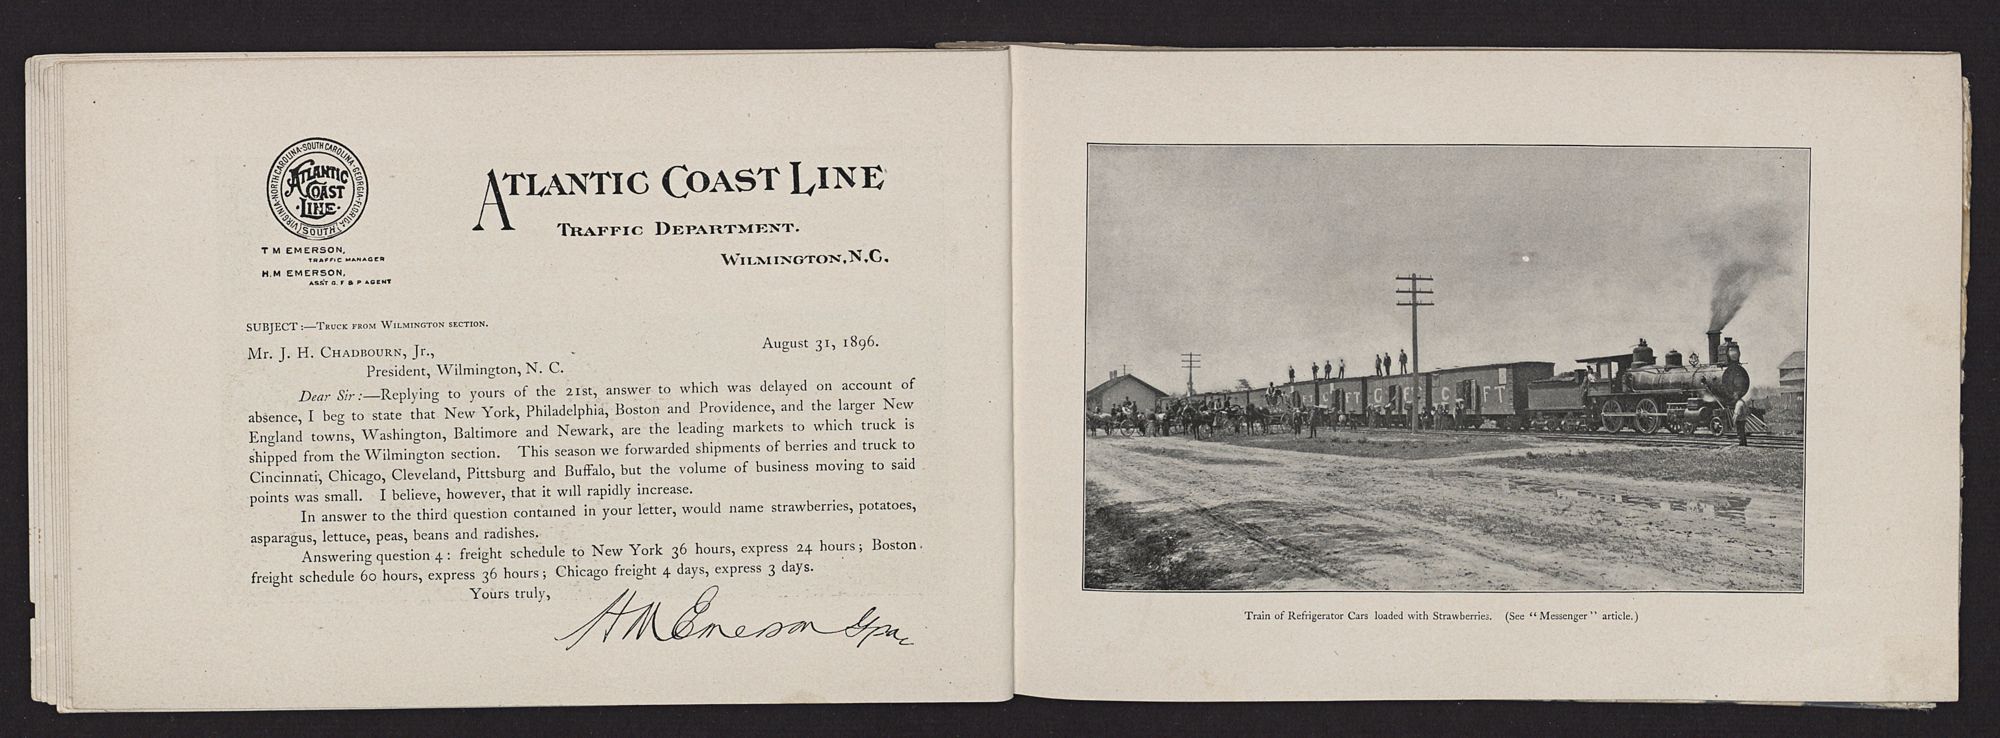 VIRGINIA-NORTH CAROLINA-SOUTH CAROLINA-GEORGIA-FLORIDA
ATLANTIC
COAST
·LINE·
SOUTH
T M EMERSON,
TRAFFIC MANAGER
H.M EMERSON,
ASS'T G. F & P AGENT
ATLANTIC COAST LINE
TRAFFIC DEPARTMENT.
WILMINGTON, N.C.
SUBJECT:—TRUCK FROM WILMINGTON SECTION.
August 31, 1896.
Mr. J. H. CHADBOURN, Jr.,
President, Wilmington, N. C.
Dear Sir:—Replying to yours of the 21st, answer to which was delayed on account of
absence, I beg to state that New York, Philadelphia, Boston and Providence, and the larger New
England towns, Washington, Baltimore and Newark, are the leading markets to which truck is
shipped from the Wilmington section. This season we forwarded shipments of berries and truck to
Cincinnati, Chicago, Cleveland, Pittsburg and Buffalo, but the volume of business moving to said
points was small. I believe, however, that it will rapidly increase.
In answer to the third question contained in your letter, would name strawberries, potatoes,
asparagus, lettuce, peas, beans and radishes.
Answering question 4: freight schedule to New York 36 hours, express 24 hours; Boston
freight schedule 60 hours, express 36 hours; Chicago freight 4 days, express 3 days.
Yours truly,
H M Emerson
C F T
Train of Refrigerator Cars loaded with Strawberries. (See "Messenger" article.)